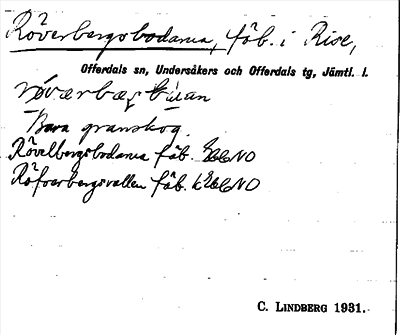 Röverbergsbodarna, fäb. i Rise,
Offerdals sn, Undersåkers och Offerdals tg, Jämtl. l.
Bara granskog.
Rövelbergsbodarna fäb.
Röfverbergsvallen fäb.
C. LINDBERG 1931.